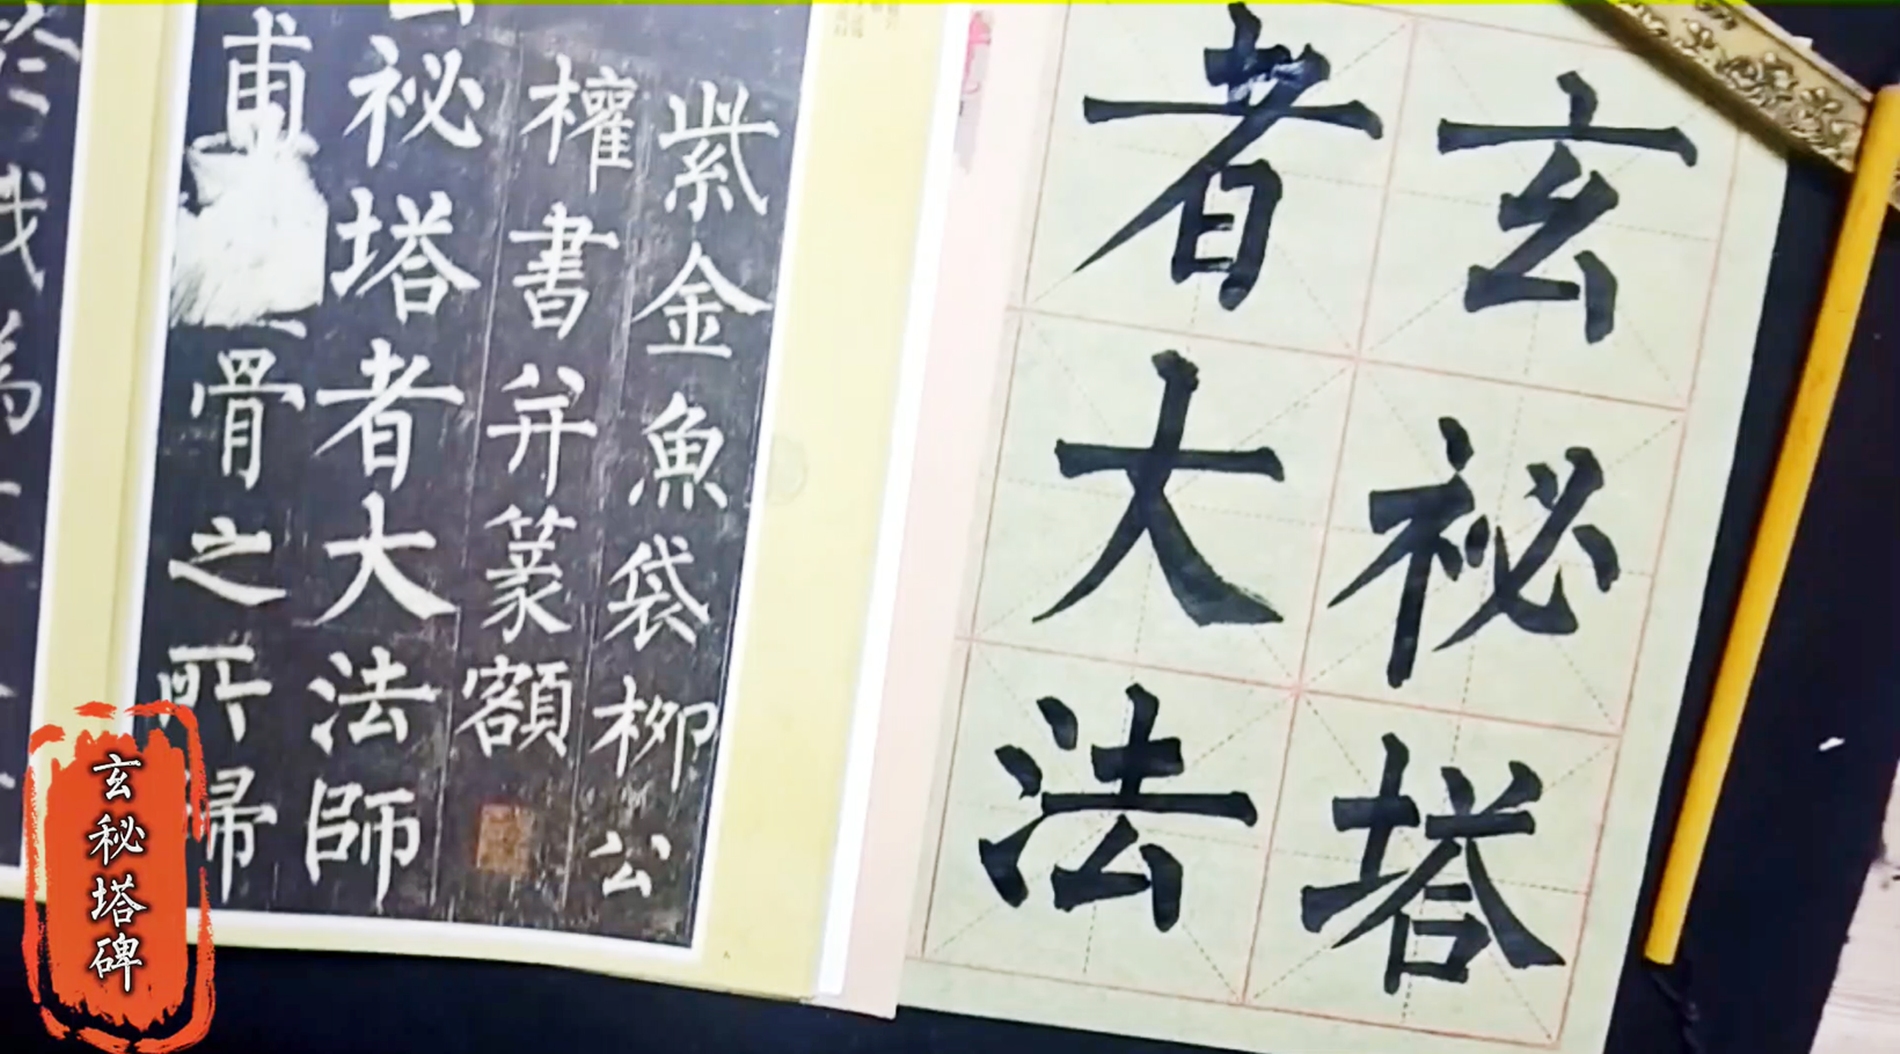 玄祕塔
者大法
紫金魚袋柳公
權書并篆額
祕塔者大法師
甫骨之所歸
玄秘塔碑